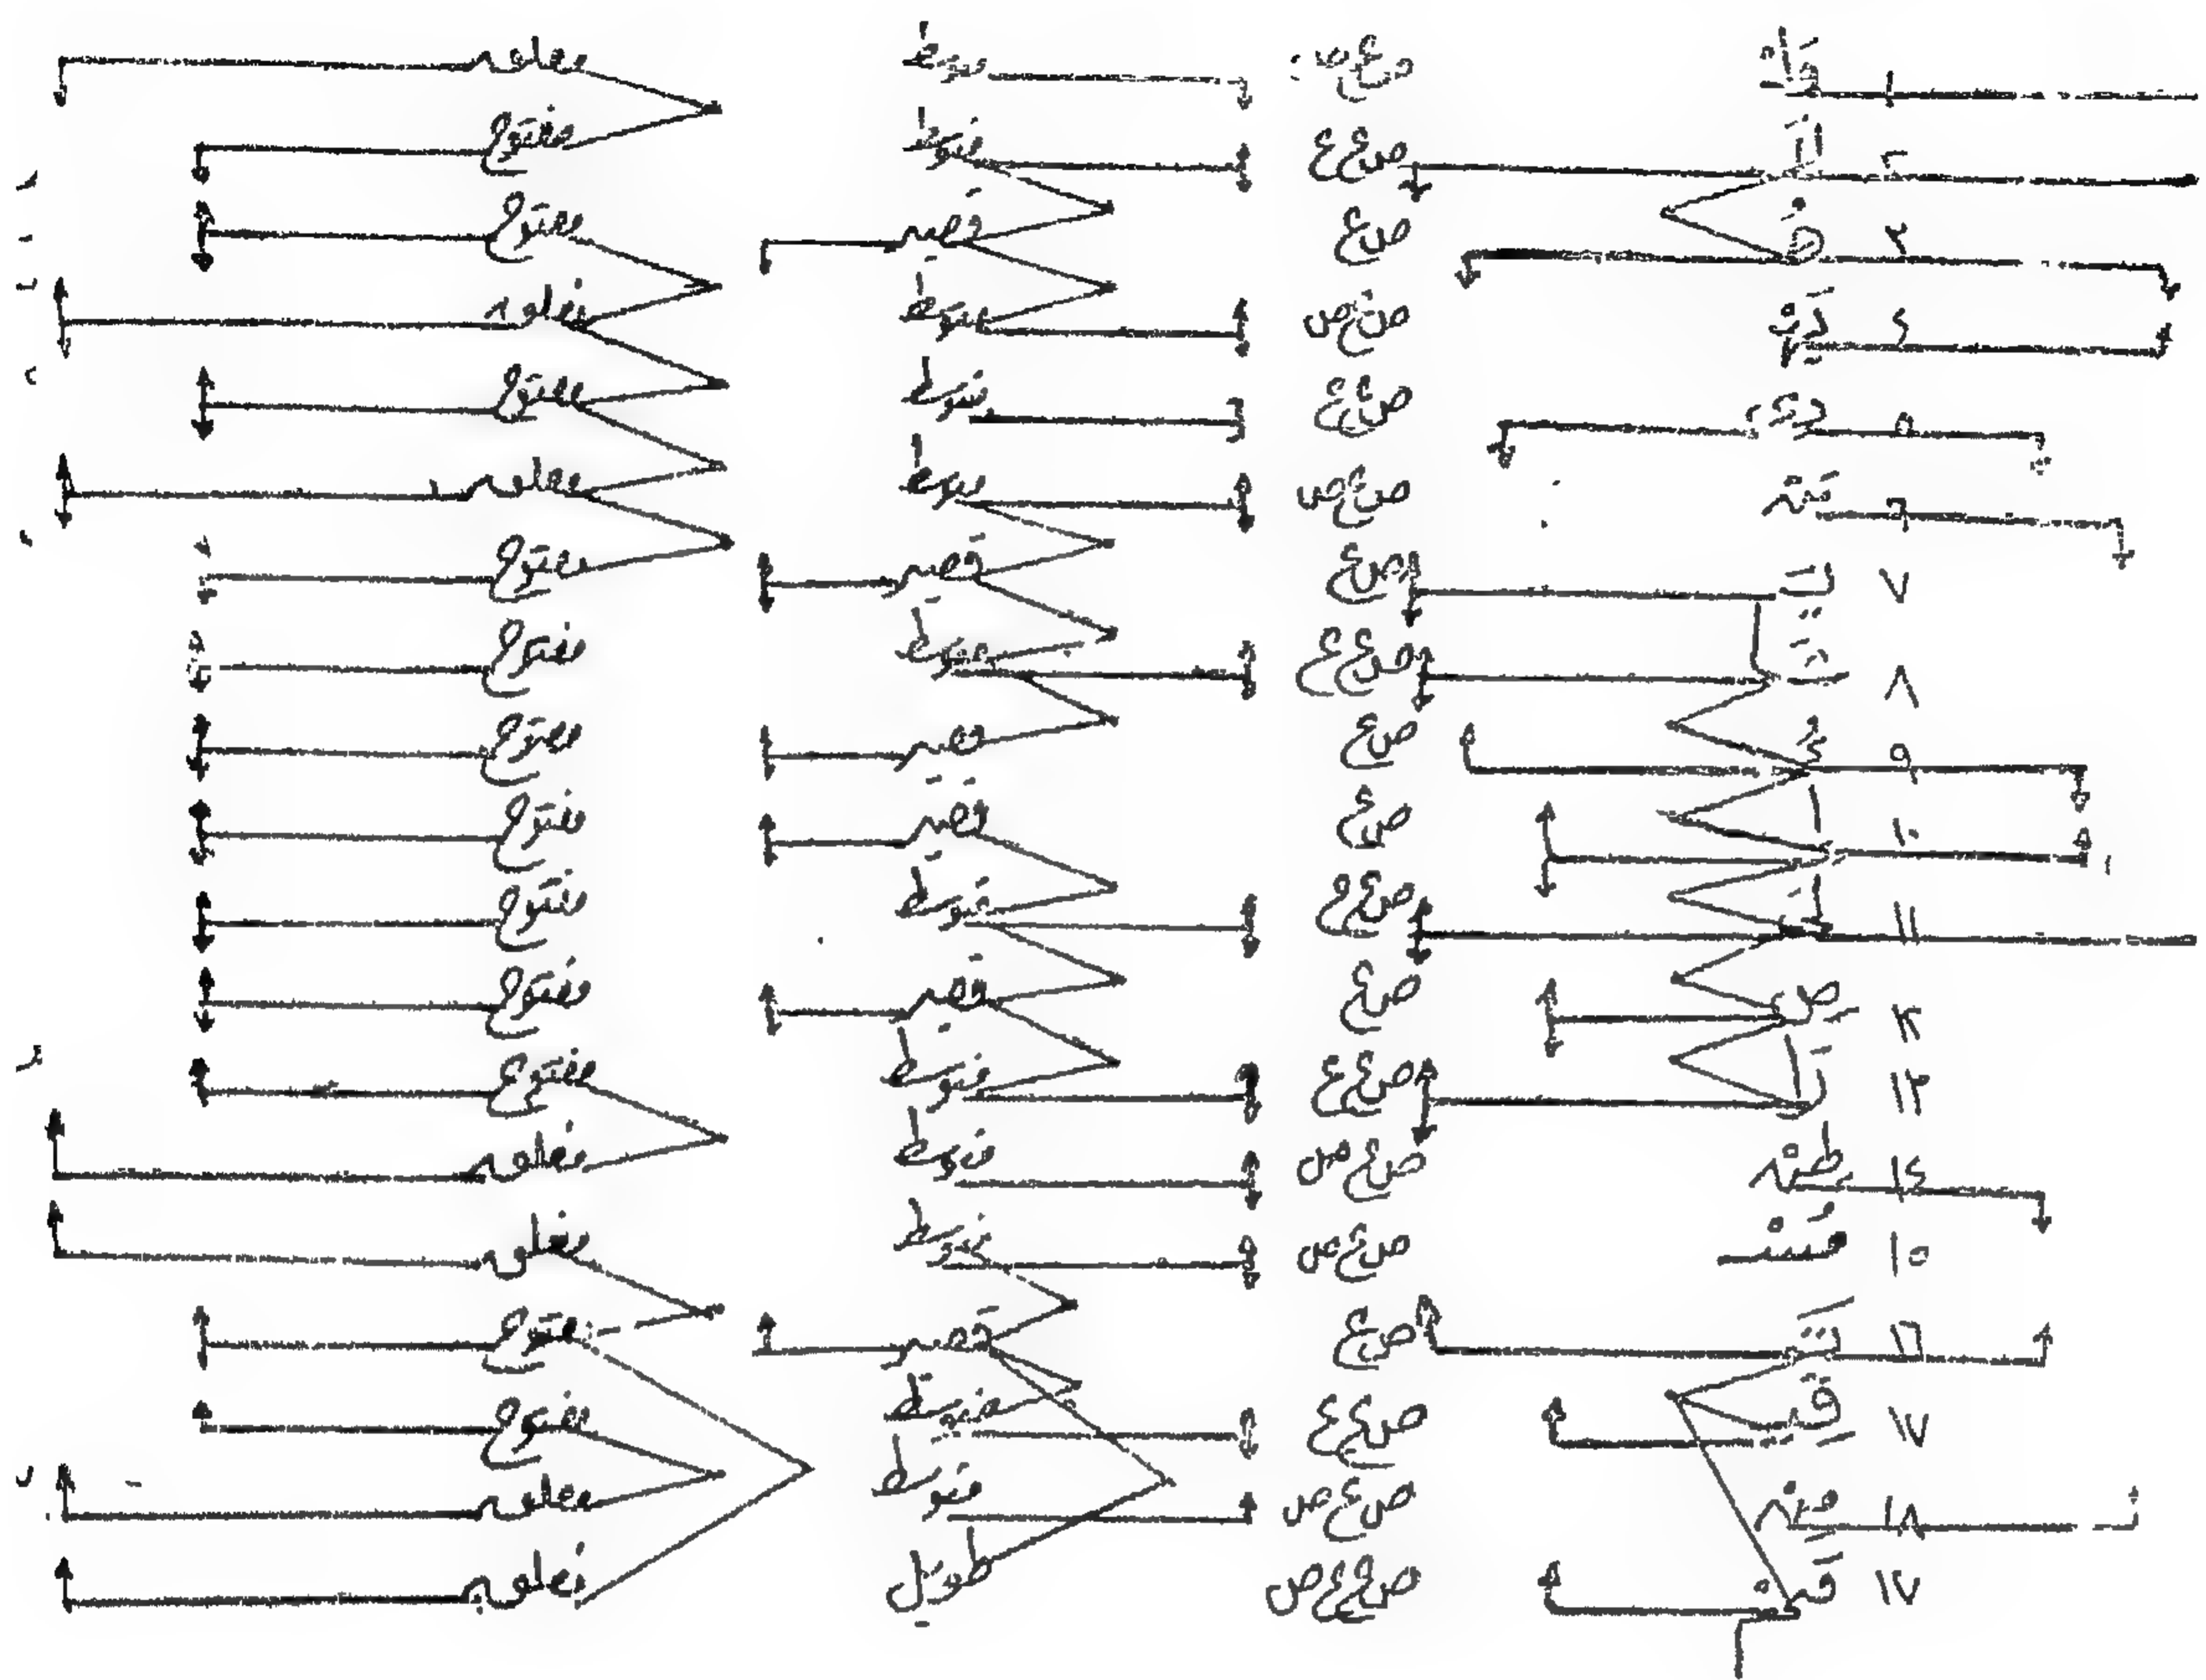 ١ وَأَنْ ص ع ص متوسط مغلق
٢ لَا ص ع ع متوسط مفتوح
٣ هُ ص ع قصير مفتوح
٤ ص ع ص متوسط مغلق
٥ ص ع ع متوسط مفتوح
٦ ص ع ص متوسط مغلق
٧ ص ع قصير مفتوح
٨ ص ع ع متوسط مفتوح
٩ ص ع قصير مفتوح
١٠ ص ع قصير مفتوح
١١ ص ع ع متوسط مفتوح
١٢ صِ ص ع قصير مفتوح
١٣ رَا ص ع ع متوسط مفتوح
١٤ ص ع ص متوسط مغلق
١٥ مُسْـ ص ع ص متوسط مغلق
١٦ تَـ ص ع قصير مفتوح
١٧ قِيـ ص ع ع متوسط مفتوح
١٨ ص ع ص متوسط مغلق
١٧ ص ع ع ص طويل مغلق